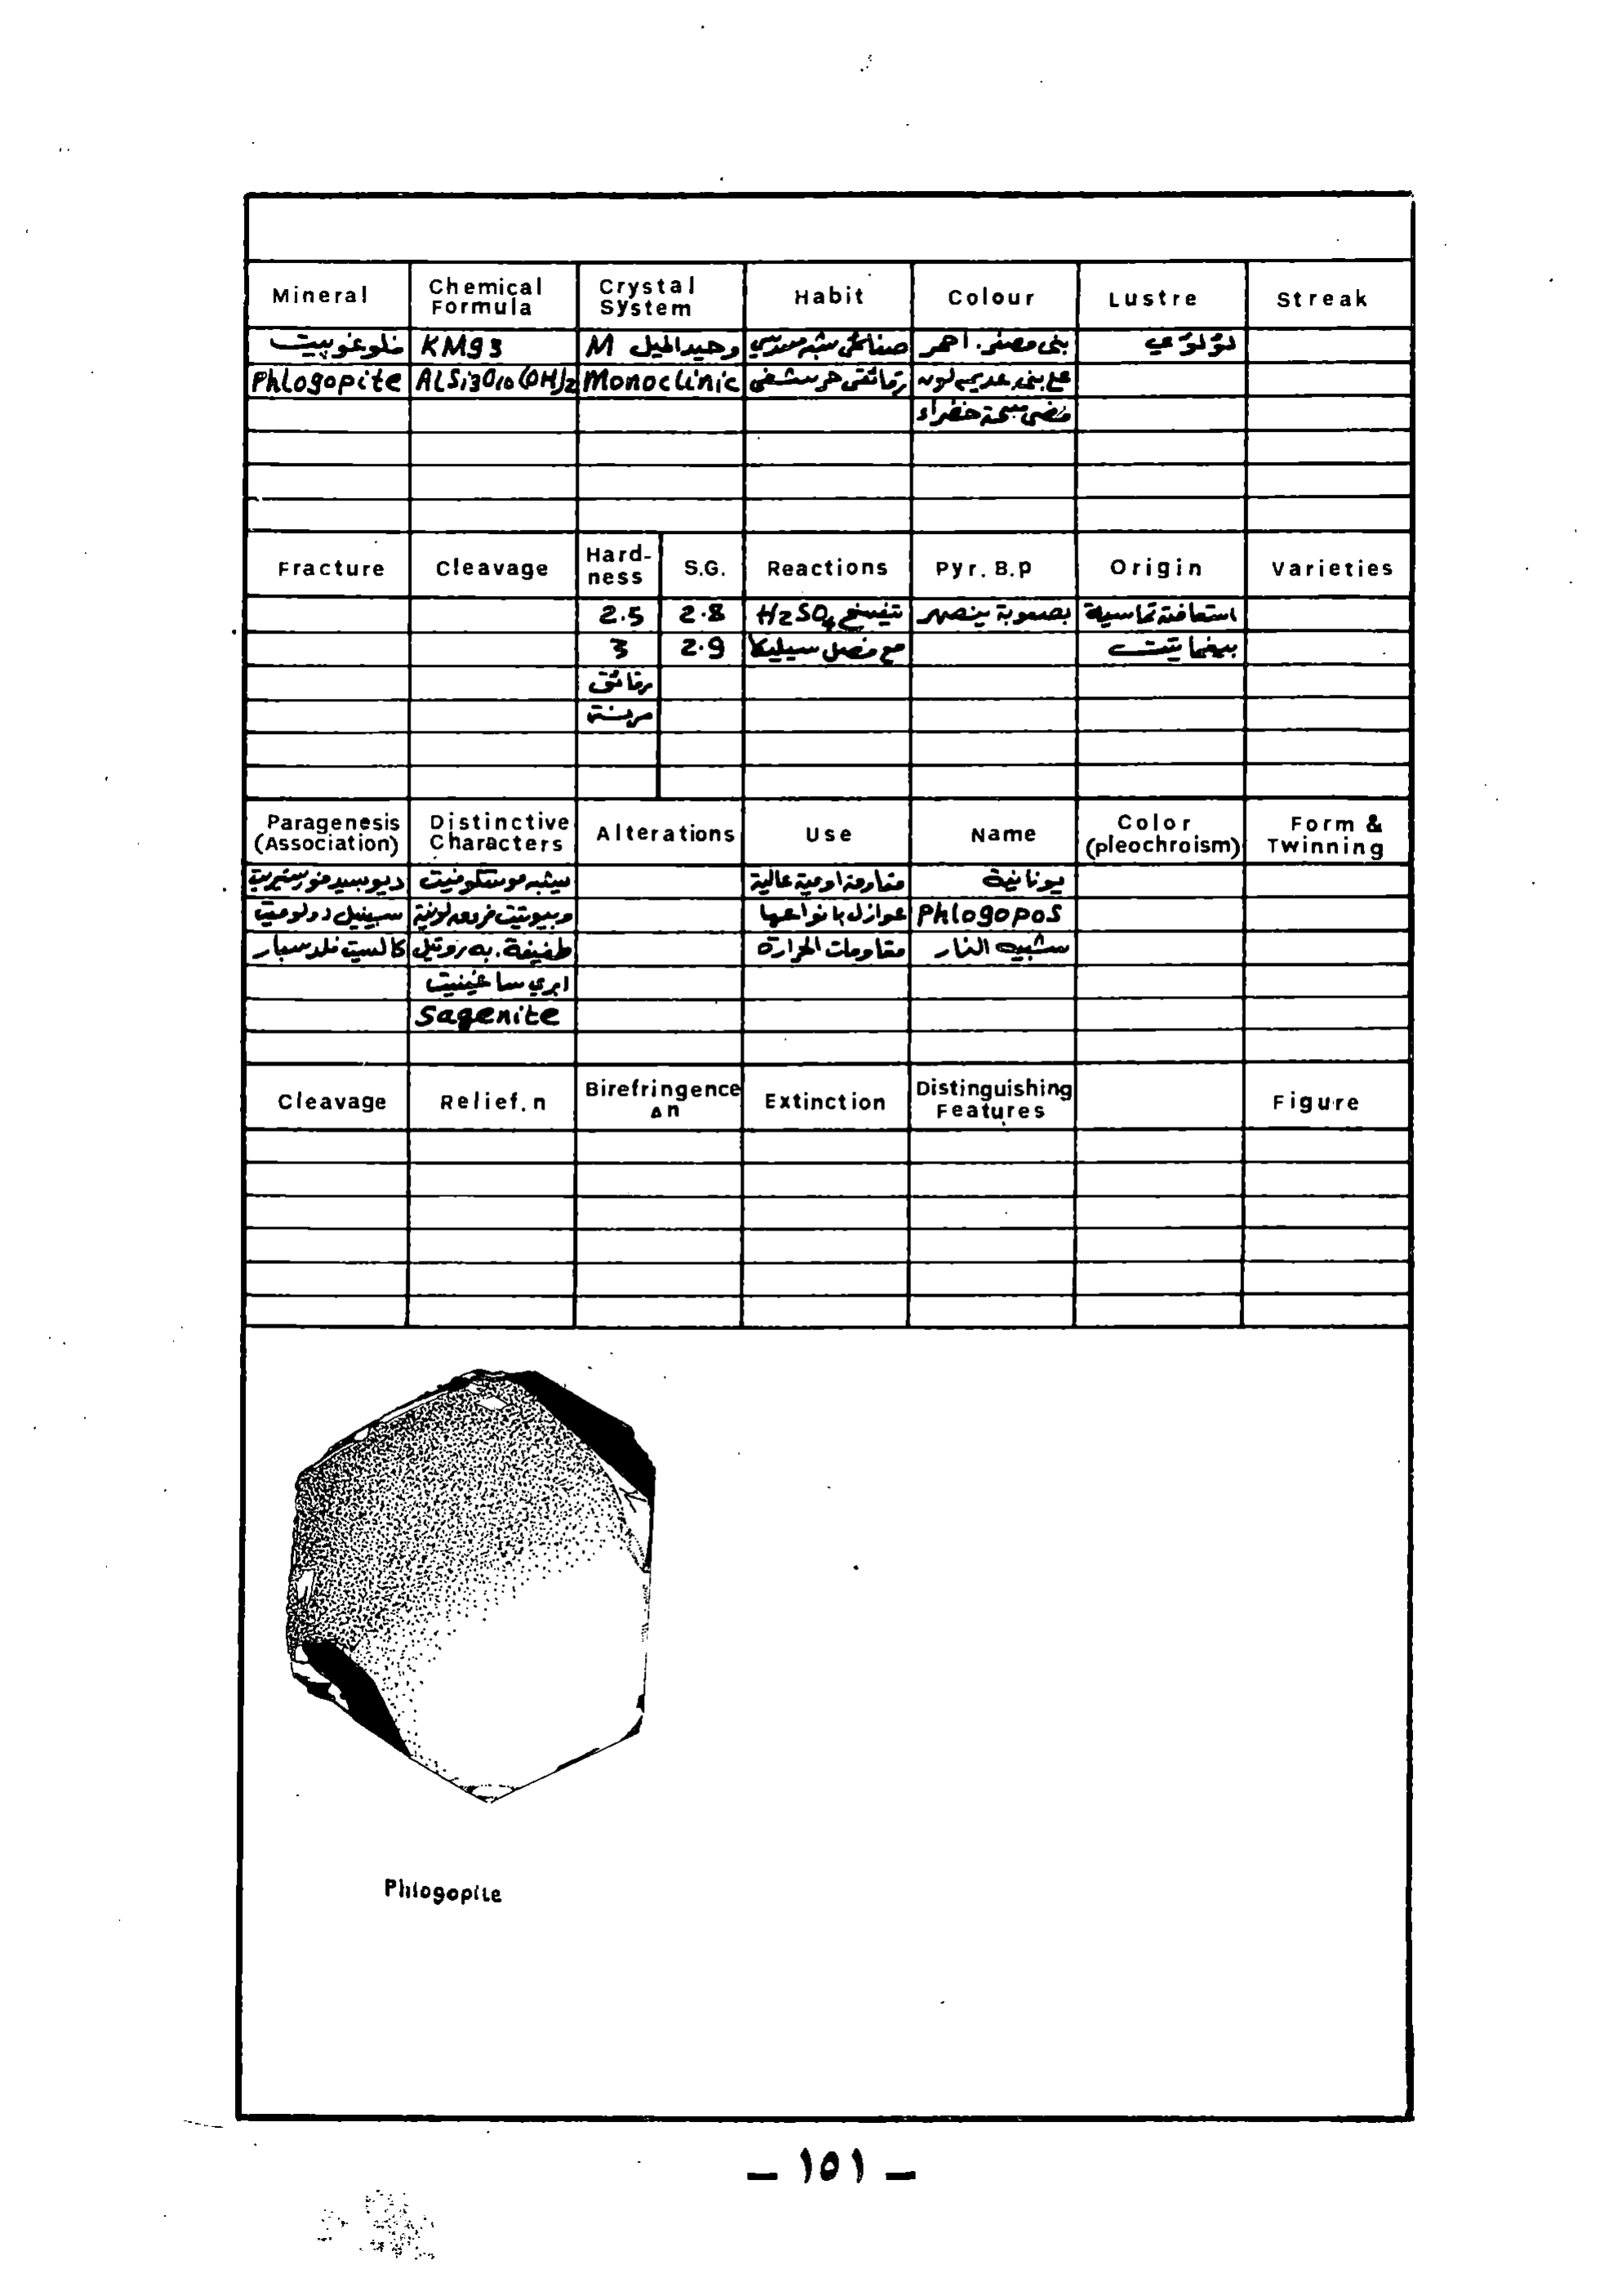 Mineral Chemical Formula Crystal System Habit Colour Lustre Streak
فلوغوبيت KMg3 وحيد الميل M صفائحي شبه سدسي بني مصفر. احمر لؤلؤي
Phlogopite ALSi3O10(OH)2 Monoclinic رقائقي حرشفي بني عديم لون
فضي مسحة خضراء
Fracture Cleavage Hard-ness S.G. Reactions Pyr. B.p Origin Varieties
2.5 2.8 H2SO4 يتفسخ بصعوبة ينصهر استحالة تماسية
3 2.9 مع فصل سيليكا بيغماتيت
رقائق
مرنة
Paragenesis (Association) Distinctive Characters Alterations Use Name Color (pleochroism) Form & Twinning
ديوبسيد فورستيريت يشبه موسكوفيت مقاومة اوعية عالية يونانية
سبينيل دولوميت وبيوتيت فروق لونية عوازل بانواعها Phlogopos
كالسيت فلدسبار طفيفة. به روتيل مقاومات الحرارة شبيه النار
ابري ساغينيت
Sagenite
Cleavage Relief. n Birefringence Δn Extinction Distinguishing Features Figure
Phlogopite
– ١٥١ –